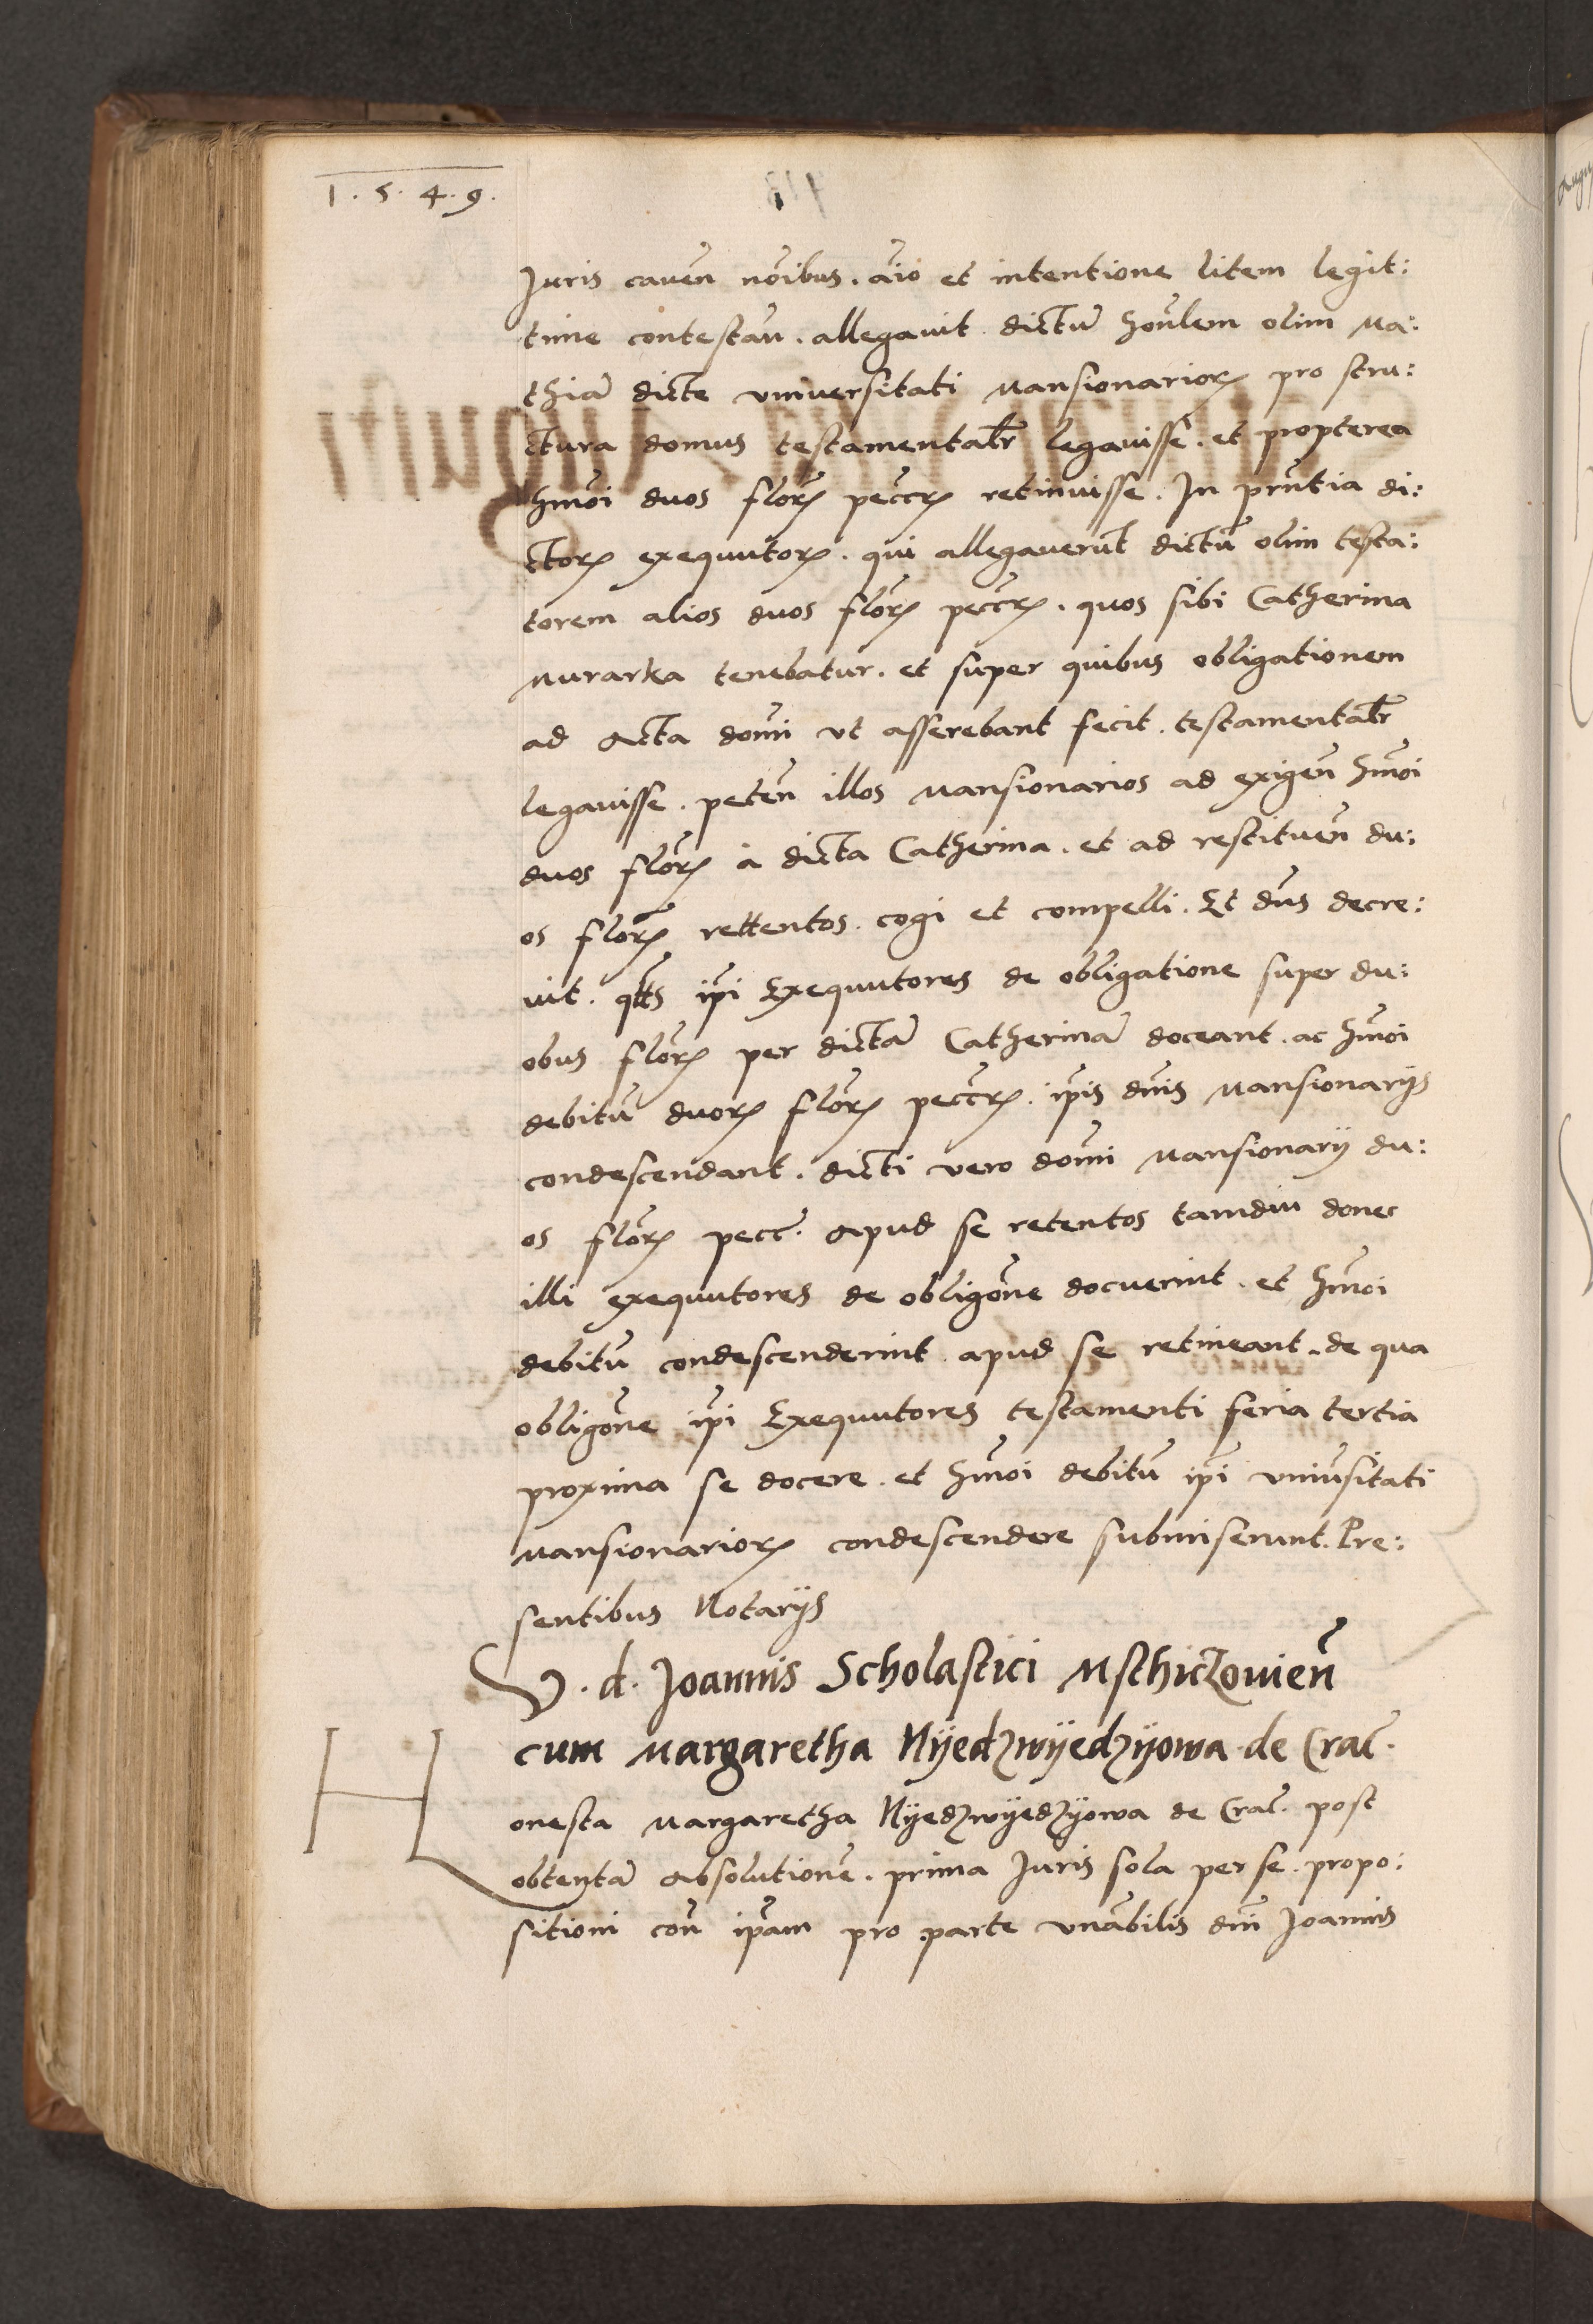 1.5.4.9.
Juris caueñ noïbus. aïo et intentione litem legit:
time contestañ. allegauit dictũ honũlem olim Ma:
thiã dicte vniuersitati Mansionarioꝝ pro stru:
ctura domus testamentalr̃ legauisse. et propterea
hmõi duos florꝝ peccꝝ retinuisse. In pñtia di:
ctorꝝ exequutorꝝ. qui allegauerũt dictũ olim testa:
torem alios duos florꝝ peccꝝ. quos sibi Catherina
Murarka tenebatur. et super quibus obligationem
ad Acta domĩ vt asserebant fecit. testamentalr̃
legauisse. peteñ illos Mansionarios ad exigeñ hmõi
duos florꝝ à dicta Catherina. et ad restitueñ du:
os florꝝ rettentos. cogi et compelli. Et dñs decre:
uit. qtt̃s ip̃i Exequutores de obligatione super du:
obus florꝝ per dictã Catherinã doceant. ac hmõi
debitũ duorꝝ florꝝ peccꝝ. ip̃is dñis Mansionarijs
condescendant. dicti vero domĩ Mansionarij du:
os florꝝ pecc̃. Apud se retentos tamdiu donec
illi exequutores de obligõne docuerint. et hmõi
debitũ condescenderint apud se retineant. de qua
obligõne ip̃i Exequutores testamenti feria tertia
proxima se docere. et hmõi debitũ ip̃i vniũsitati
Mansionariorꝝ condescendere submiserunt. Pre:
sentibus Notarijs
V. d. Joannis Scholastici Msthiczouieñ
cum Margaretha Nÿedzwÿedzÿowa de Crac̃.
Honesta Margaretha Nÿedzwÿedzÿowa de Crac̃. post
obtentã Absolutionẽ. prima Juris sola per se. propo:
sitioni coñ ip̃am pro parte vñabilis dñi Joannis